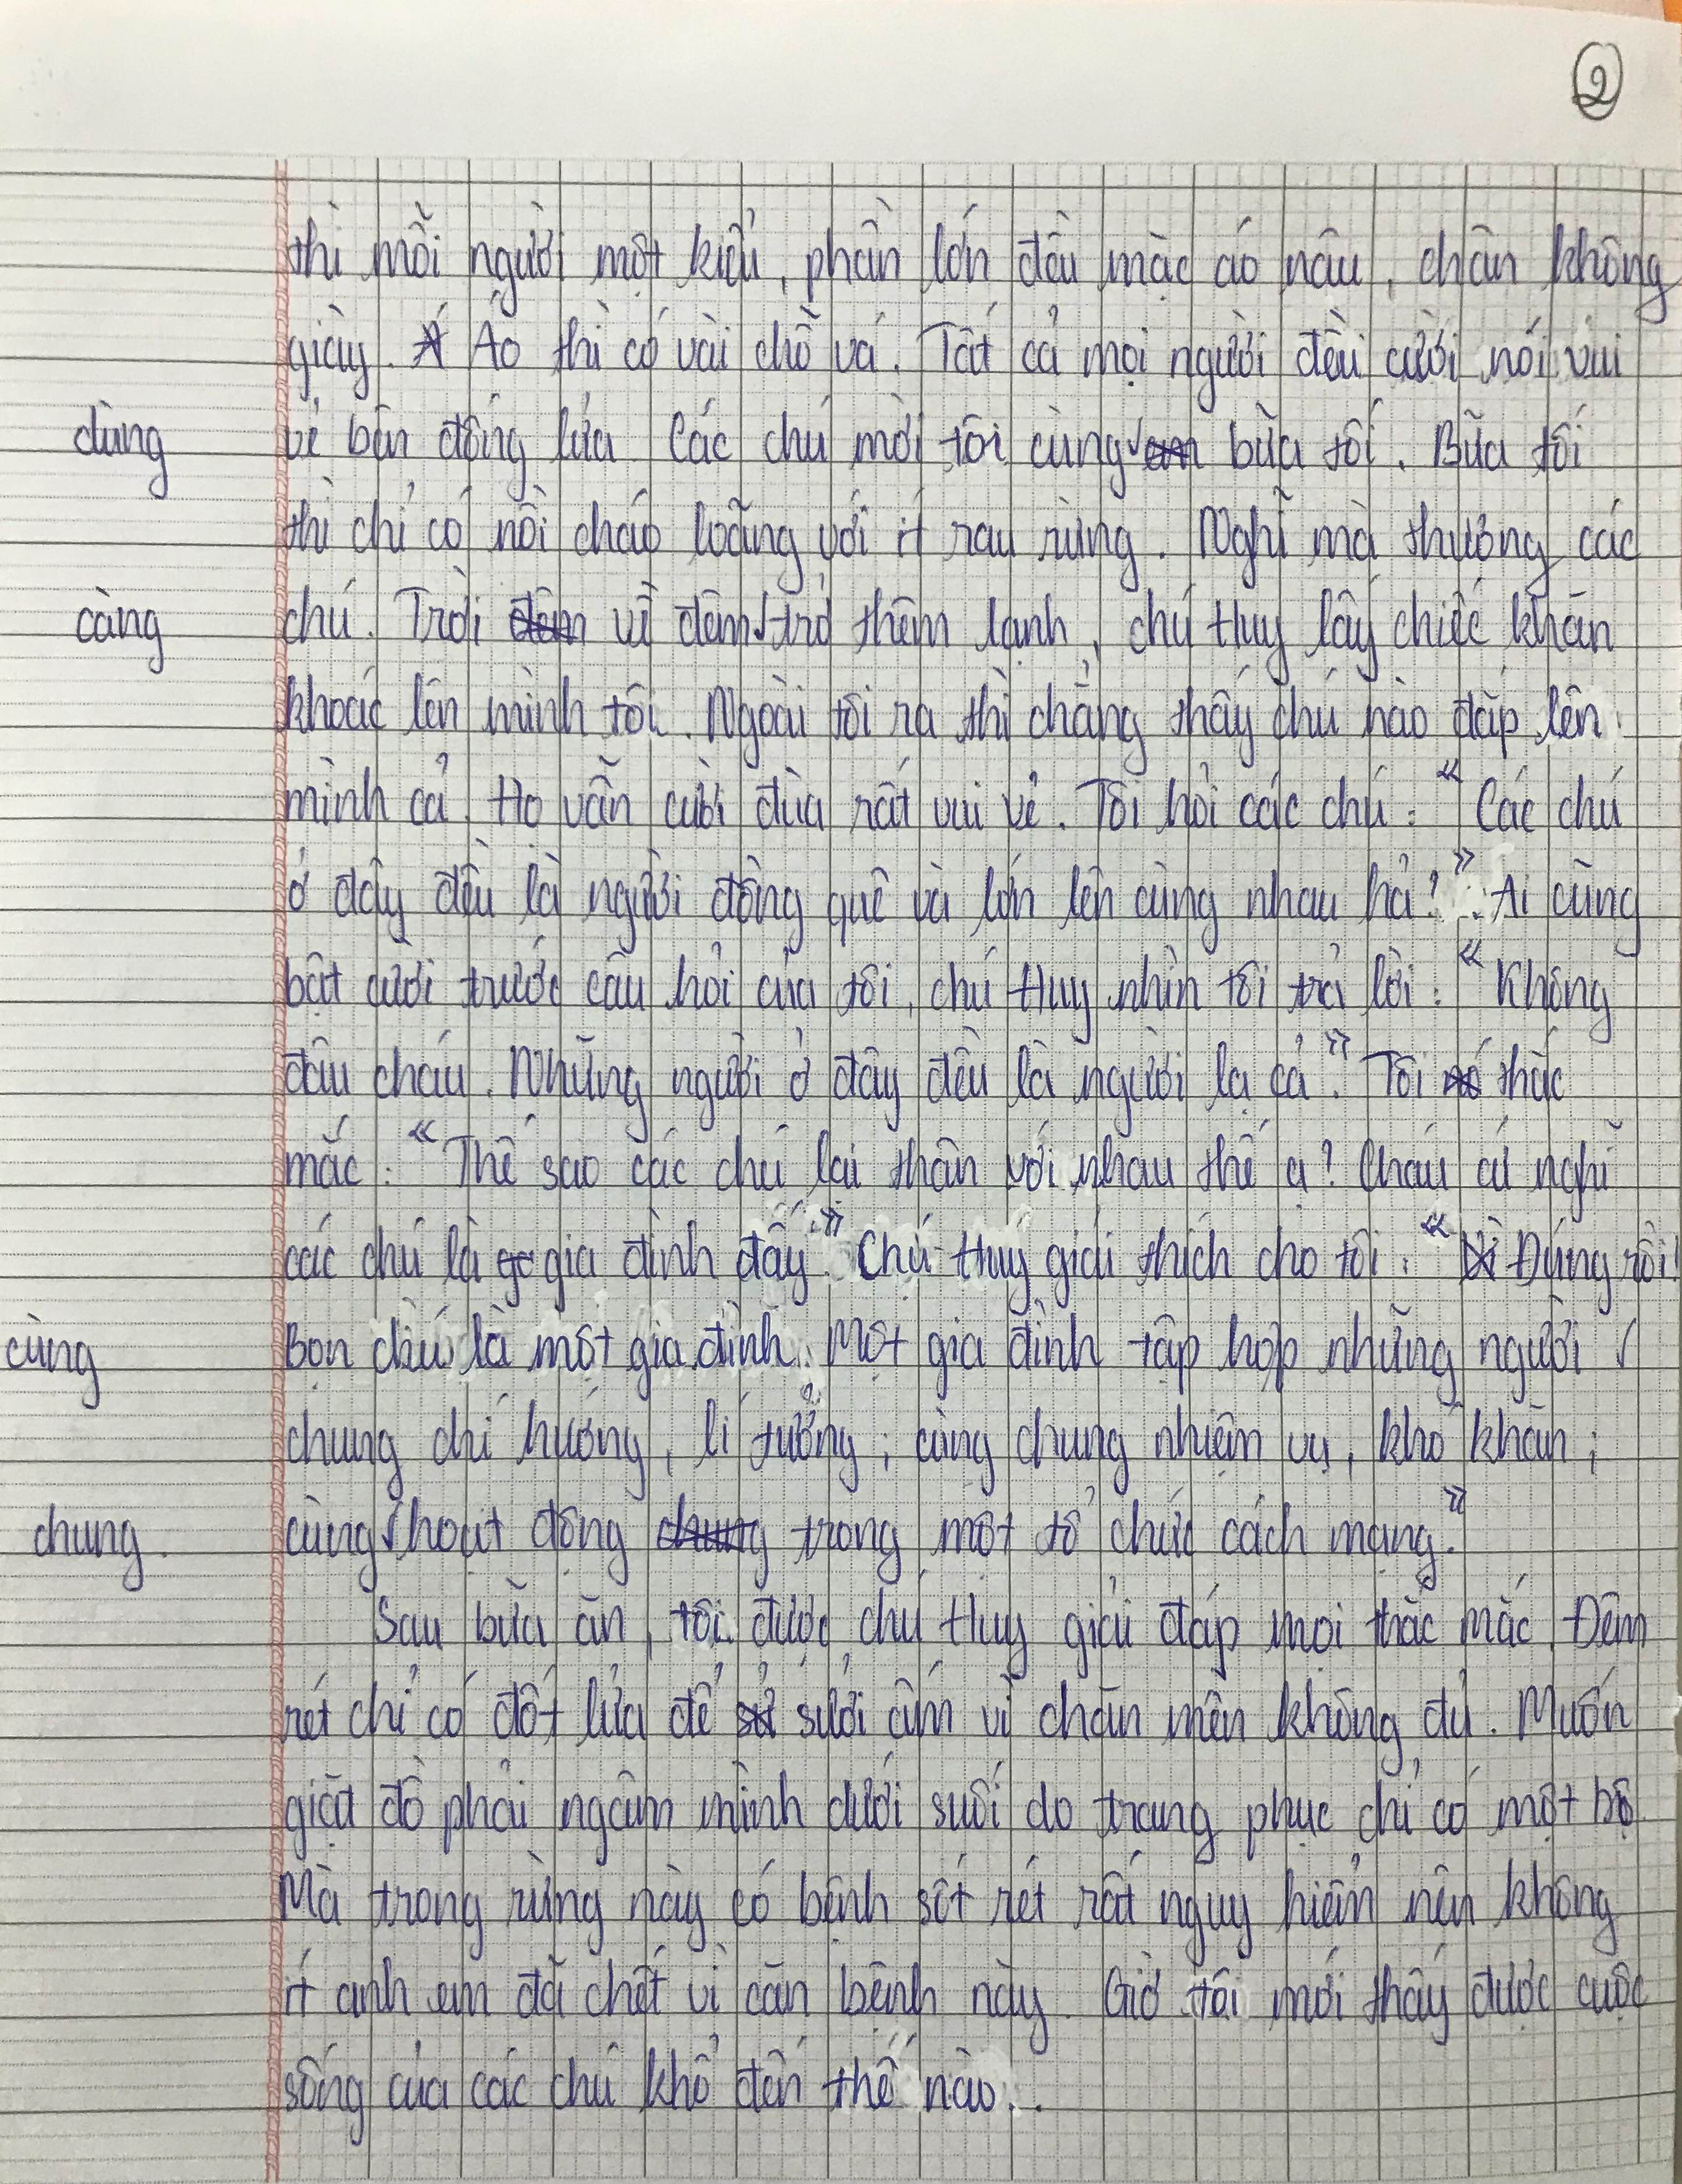 2
thì mỗi người một kiểu, phần lớn đều mặc áo nâu, chân không
giày. Áo thì có vài chỗ vá. Tất cả mọi người đều cười nói vui
dùng
vẻ bên đống lửa. Các chú mời tôi cùng bữa tối. Bữa tối
thì chỉ có nồi cháo loãng với ít rau rừng. Nghĩ mà thương các
càng
chú. Trời về đêm trở thêm lạnh, chú Huy lấy chiếc khăn
khoác lên mình tôi. Ngoài tôi ra thì chẳng thấy chú nào đắp lên
mình cả. Họ vẫn cười đùa rất vui vẻ. Tôi hỏi các chú: "Các chú
ở đây đều là người đồng quê và lớn lên cùng nhau hả?". Ai cũng
bật cười trước câu hỏi của tôi, chú Huy nhìn tôi trả lời: "Không
đâu cháu. Những người ở đây đều là người lạ cả". Tôi thắc
mắc: "Thế sao các chú lại thân với nhau thế ạ? Cháu cứ nghĩ
các chú là gia đình đấy". Chú Huy giải thích cho tôi: "Đúng rồi!
cùng
Bọn chú là một gia đình. Một gia đình tập hợp những người
chung chí hướng, lí tưởng; cùng chung nhiệm vụ, khó khăn;
chung.
cùng hoạt động trong một tổ chức cách mạng."
Sau bữa ăn, tôi được chú Huy giải đáp mọi thắc mắc. Đêm
rét chỉ có đốt lửa để sưởi ấm vì chăn mền không đủ. Muốn
giặt đồ phải ngâm mình dưới suối do trang phục chỉ có một bộ.
Mà trong rừng này có bệnh sốt rét rất nguy hiểm nên không
ít anh em đã chết vì căn bệnh này. Giờ tôi mới thấy được cuộc
sống của các chú khổ đến thế nào.